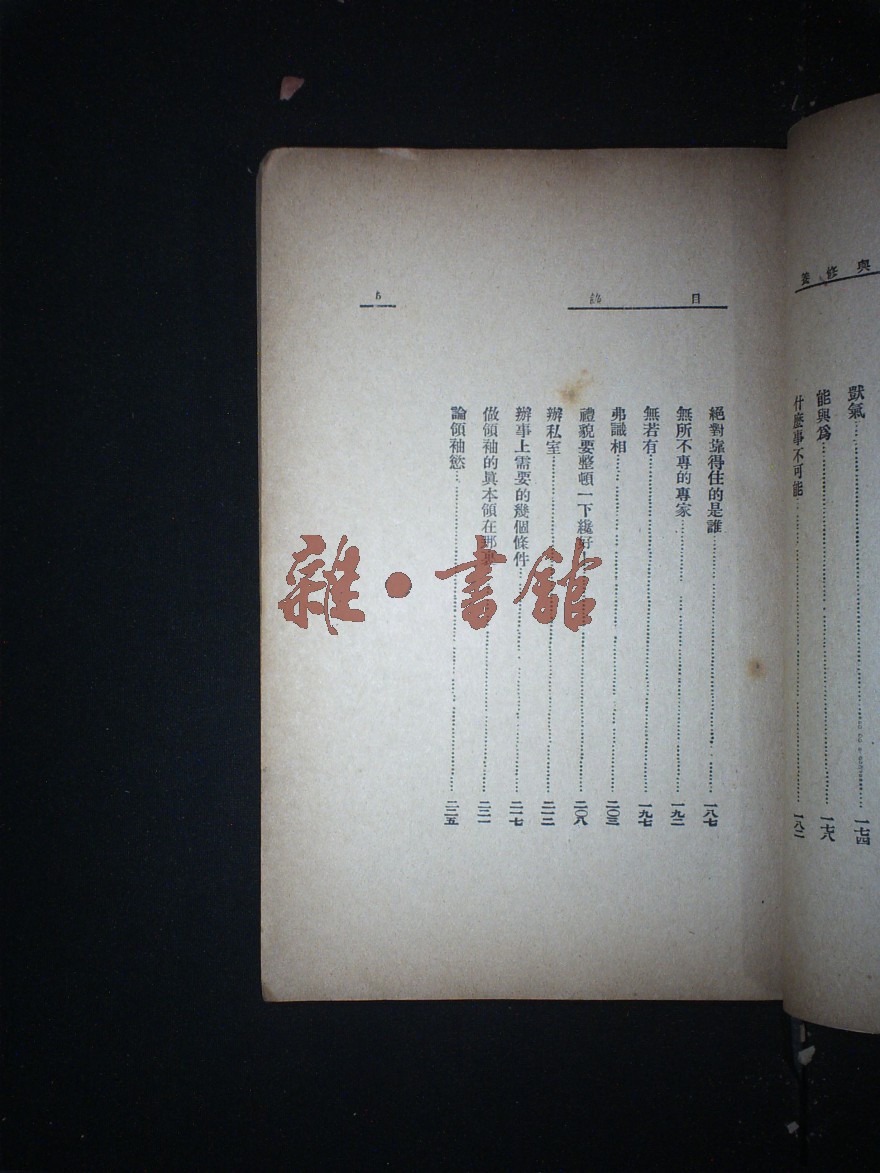 與修養
獃氣 一七四
能與為 一七八
什麼事不可能 一八二
目錄
絕對靠得住的是誰 一八七
無所不專的專家 一九二
無若有 一九七
弗識相 二〇三
禮貌要整頓一下纔好 二〇八
辦私室 二一二
辦事上需要的幾個條件 二一七
做領袖的眞本領在那裏 二二一
論領袖慾 二二五
五
雜·書館